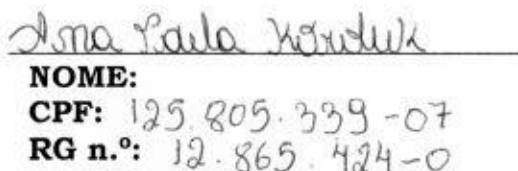 Ana Paula
NOME:
CPF: 125.805.339-07
RG n.º: 12.865.424-0